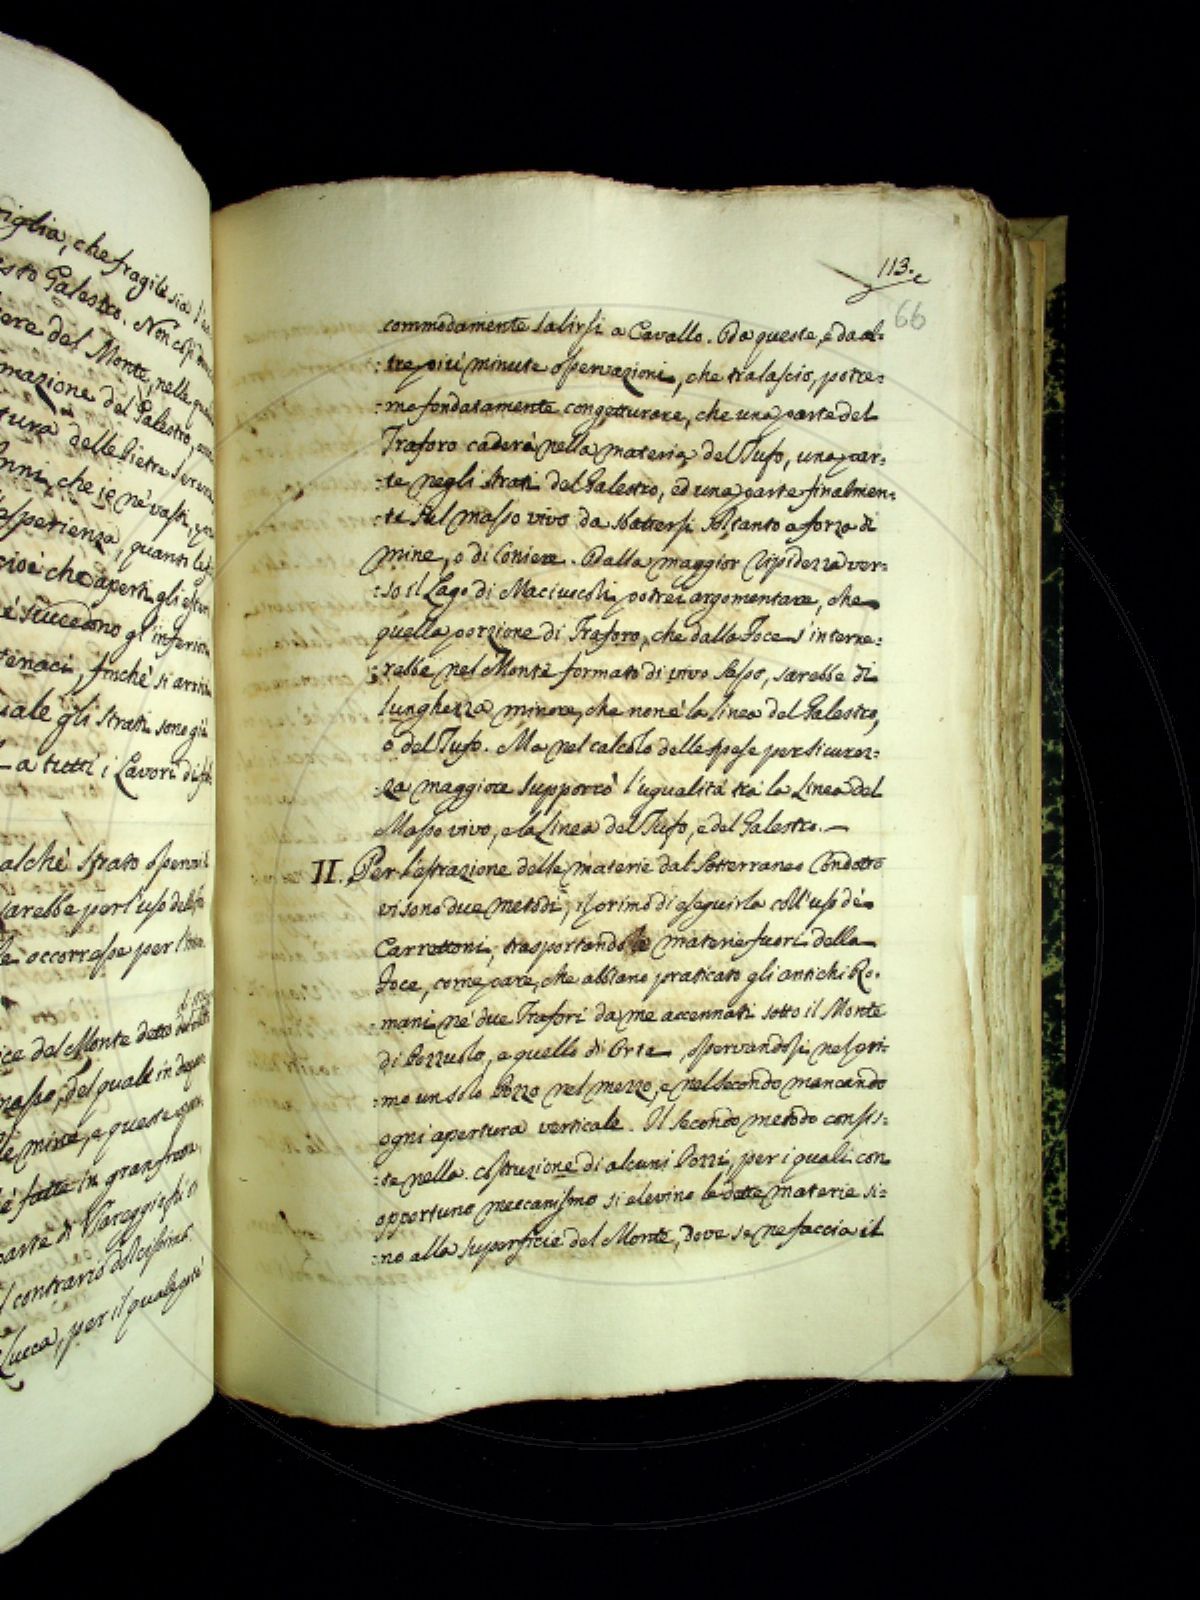 riglia, che fragile sia l'
esto Galestro. Non così
ere del Monte, nelle qua
mazione del Galestro,
tura delle Pietre Serene
nni, che ie ne vasti,
'asperienza, quanti le
cioè che aperti gli
e succedono gl'inferiori
tenaci, finchè si arri
uale gli strati sono già
a tutti i Lavori di
alchè strato osservai
sarebbe per l'uso del
le occorresse per l'in
ice del Monte detto
masso, del quale in
le mine, e queste
è fatte in gran
parte di Viareggio
l contrario dolcissimo
Lucca, per il quale
113.
66
commodamente salirsi a Cavallo. Da queste, e da al=
:tre più minute osservazioni, che tralascio, potre=
:mo fondatamente congetturare, che una parte del
Traforo caderà nella materia del Tufo, una par=
:te negli strati del Galestro, ed una parte finalmen=
:te nel masso vivo da sbattersi soltanto a forza di
mine, o di Coniere. Dalla maggior ripidezza ver=
:so il Lago di Maciuccoli potrei argomentare, che
quella porzione di Traforo, che dalla Foce s'interne=
:rebbe nel Monte formato di vivo sasso, sarebbe di
lunghezza minore, che non è la linea del Galestro,
o del Tufo. Ma nel calcolo delle spese per sicurez=
:za maggiore supporrò l'ugualità tra la Linea del
Masso vivo, e la Linea del Tufo, e del Galestro.—
II. Per l'estrazione delle materie dal Sotterraneo Condotto
vi sono due metodi; il primo di eseguirla coll'uso dè
Carrettoni, trasportando le materie fuori della
Foce, come pare, che abbiano praticato gli antichi Ro=
:mani nè due Trafori da me accennati sotto il Monte
di Pozzuolo, e quello di Orte, osservandosi nel pri=
:mo un solo Pozzo nel mezzo, e nel secondo mancando
ogni apertura verticale. Il secondo metodo consis=
:te nella costruzione di alcuni Pozzi, per i quali con
opportuno meccanismo si elevino le dette materie si=
:no alla superficie del Monte, dove se ne faccia il